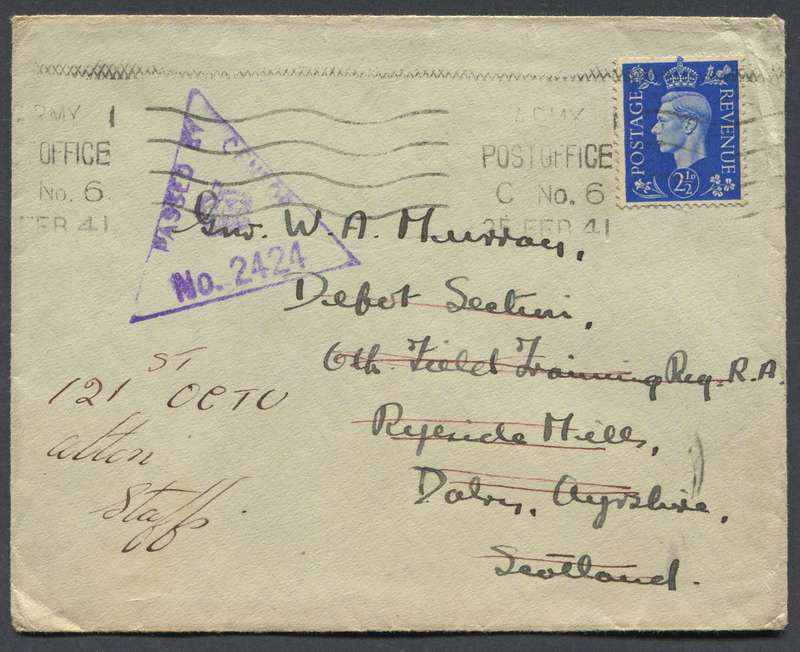 POSTAGE REVENUE
2½D
ARMY
POST OFFICE
C No. 6
25 FEB 41
RMY 1
OFFICE
No. 6
FEB 41
PASSED BY CENSOR
No. 2424
Gnr. W. A. Murray,
Depot Section,
6th. Field Training Reg. R.A.
Ryeside Mills,
Dalry, Ayrshire,
Scotland.
121ST OCTU
Alton
Staffs.